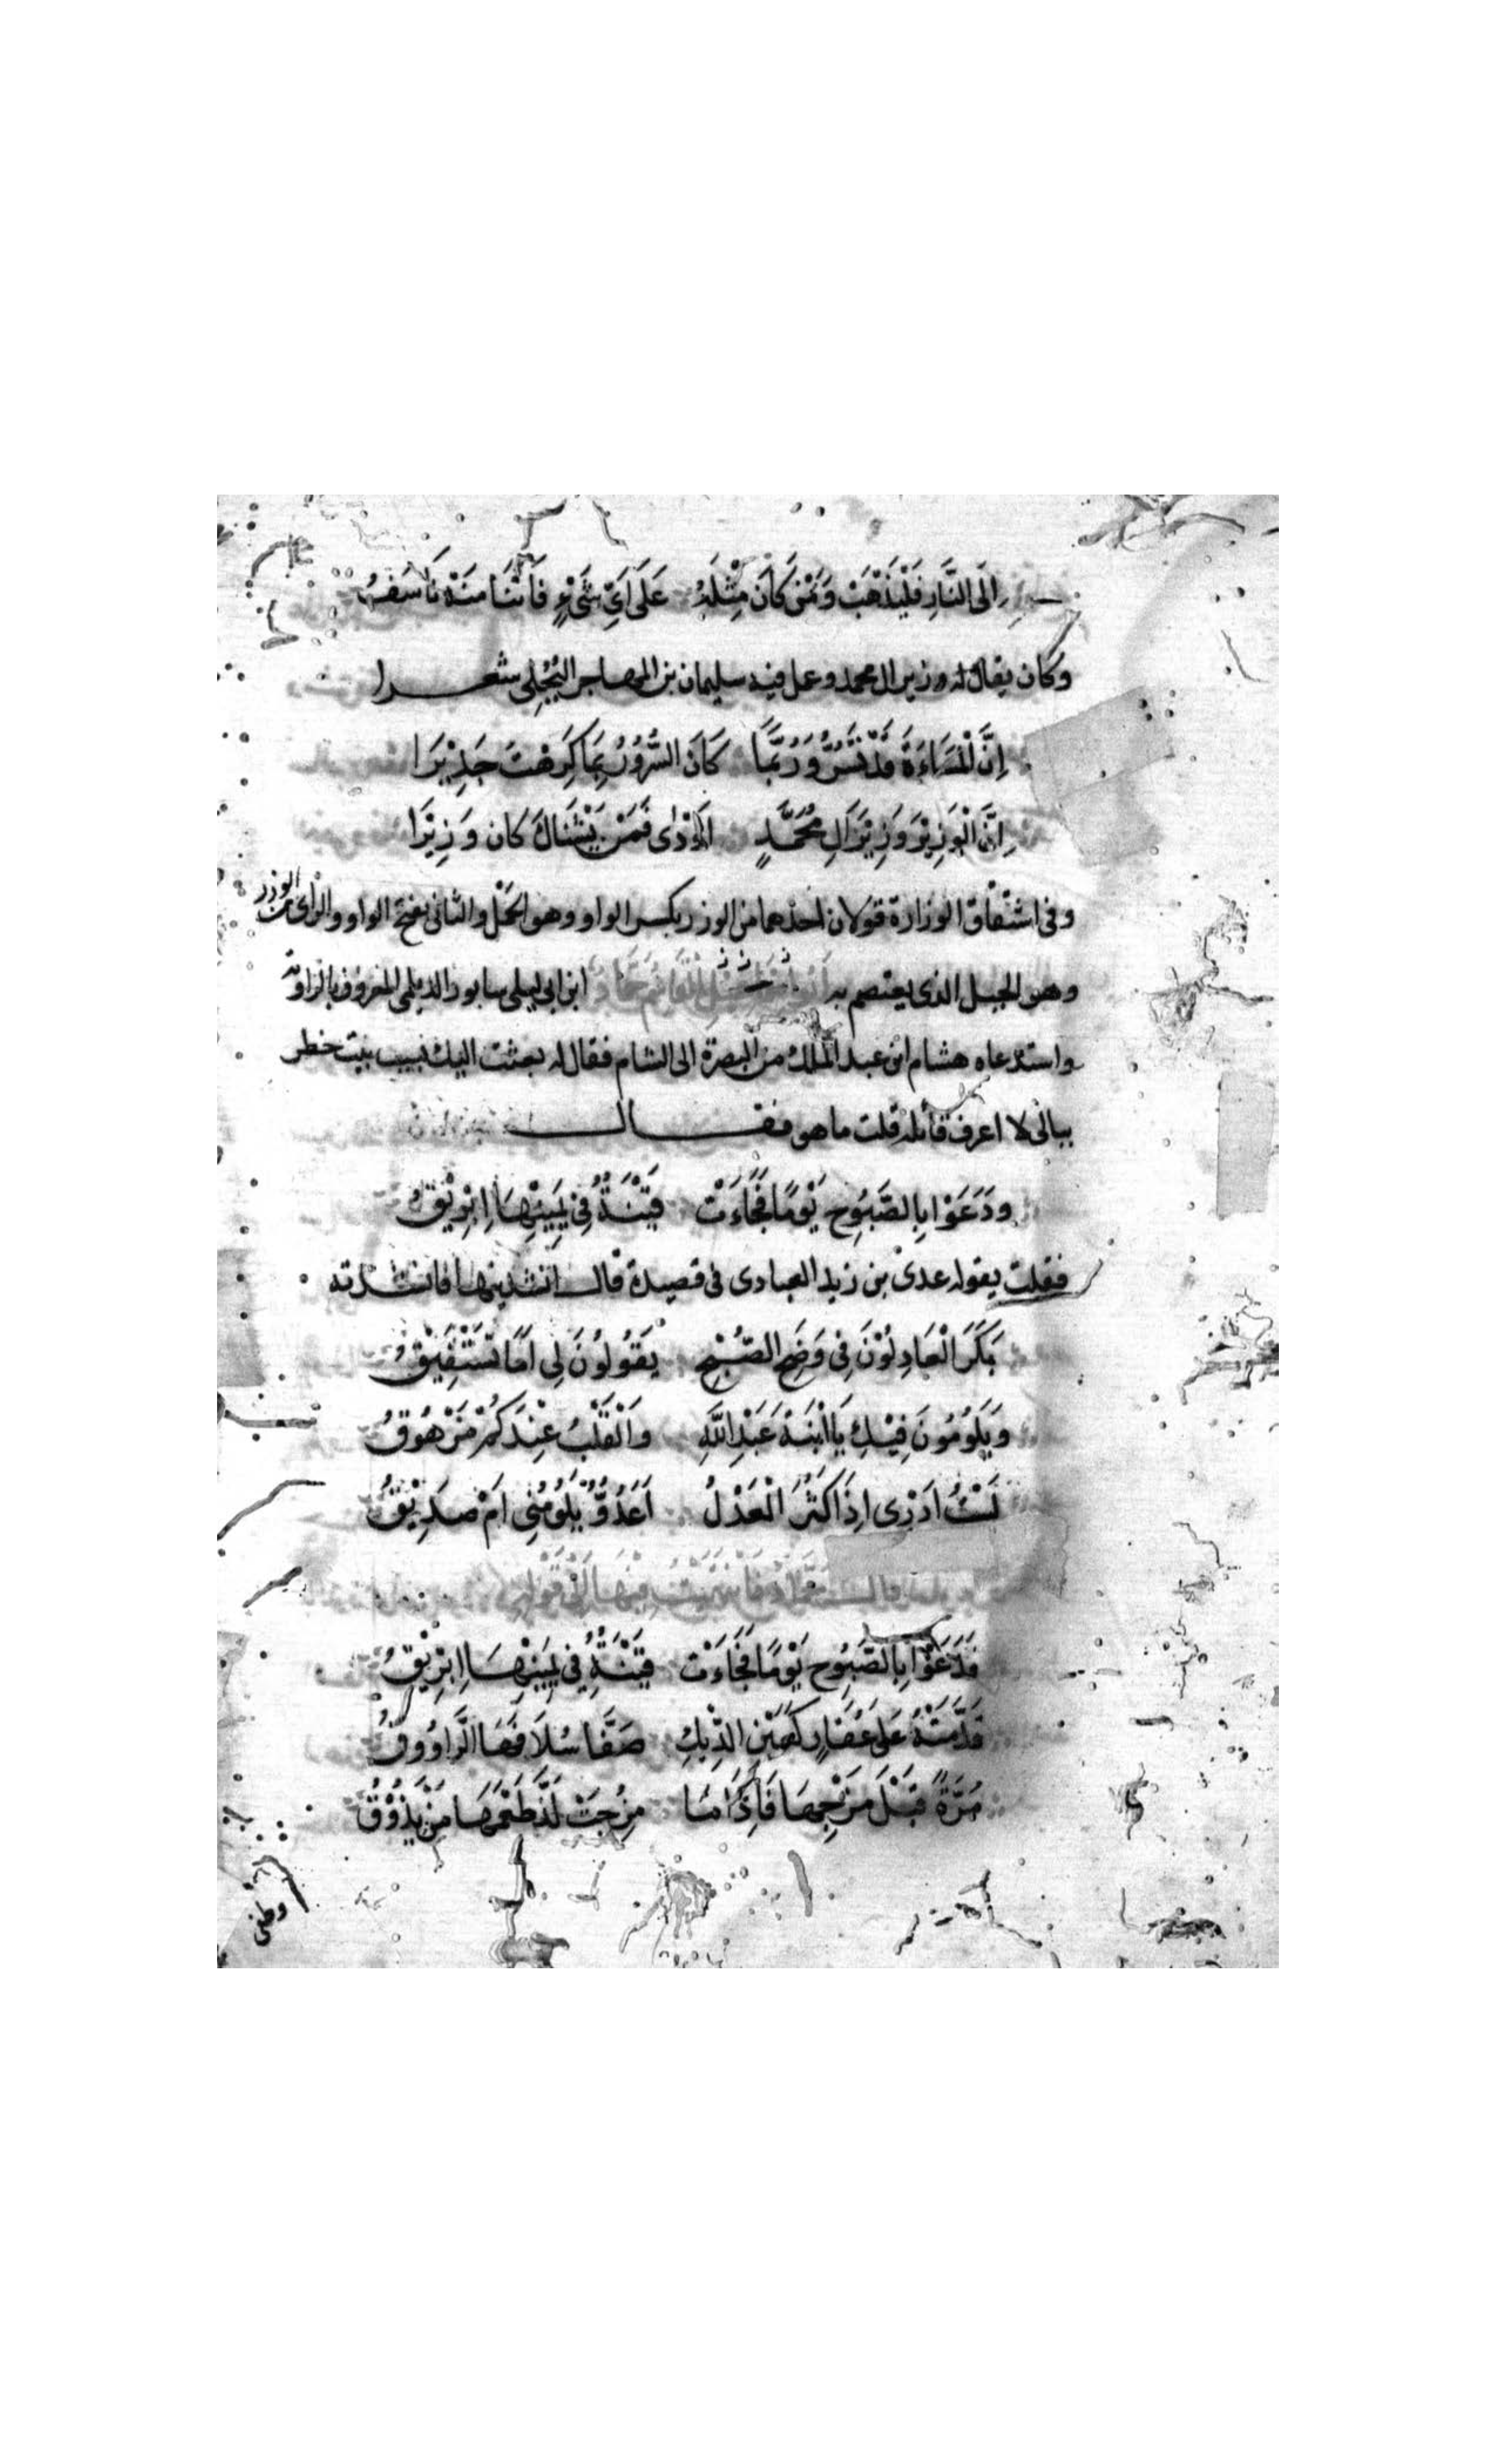 إِلَى النَّارِ فَلْيَذْهَبْ وَمَنْ كَانَ مِثْلَهُ عَلَى أَيِّ شَيْءٍ فَاتَنَا مِنْهُ نَأْسَفُ
وكان يقال له وزير ال محمد وعمل فيه سليمان بن المهاجر البجلي شعرا
اِنَّ الْمَسَاءَةَ قَدْ تَسُرُّ وَرُبَّمَا كَانَ السُّرُوْرُ بِمَا كَرِهْتَ جَدِيْرَا
اِنَّ الْوَزِيْرَ وَزِيْرَ اَلِ مُحَمَّدٍ اَوْدٰى فَمَنْ يَشْنَاكَ كان وَزِيْرَا
وفى اشتقاق الوزارة قولان احدهما من الوزر بكسر الواو وهو الحمل والثانى بفتح الواو والزاى من الوزر
وهو الجبل الذى يعتصم به ابن ابى ليلى سابور الديلمى المعروف بالراوية
واستدعاه هشام ابن عبد الملك من البصرة الى الشام فقال له بعثت اليك بسبب بيت خطر
ببالى لا اعرف قائله قلت ما هو فقال
ودَعَوْا بِالصَّبُوحِ يَوْمًا فَجَاءَتْ قَيْنَةٌ فِى يَمِيْنِهَا اِبْرِيْقُ
فقلت يقوله عدى بن زيد العبادى فى قصيدة قال انشدنيها فانشدته
بَكَرَ الْعَاذِلُوْنَ فِى وَضَحِ الصُّبْحِ يَقُولُوْنَ لِى اَمَا تَسْتَفِيْقُ
وَيَلُوْمُونَ فِيْكِ يَا ابْنَةَ عَبْدِ اللَّهِ وَالْقَلْبُ عِنْدَكُمْ مَرْهُوقُ
لَسْتُ اَدْرِى اِذَا كَثُرَ الْعَذْلُ اَعَدُوٌّ يَلُوْمُنِى اَمْ صَدِيْقُ
قال حماد فانتهيت فيها الى قوله
فَدَعَوْا بِالصَّبُوحِ يَوْمًا فَجَاءَتْ قَيْنَةٌ فِى يَمِيْنِهَا اِبْرِيْقُ
قَدَّمَتْهُ عَلَى عُقَارٍ كَعَيْنِ الدِّيْكِ صَفَّا سُلَافَهَا الرَّاوُوقُ
مُرَّةً قَبْلَ مَزْجِهَا فَاِذَا مَا مُزِجَتْ لَذَّ طَعْمُهَا مَنْ يَذُوْقُ
وطفى